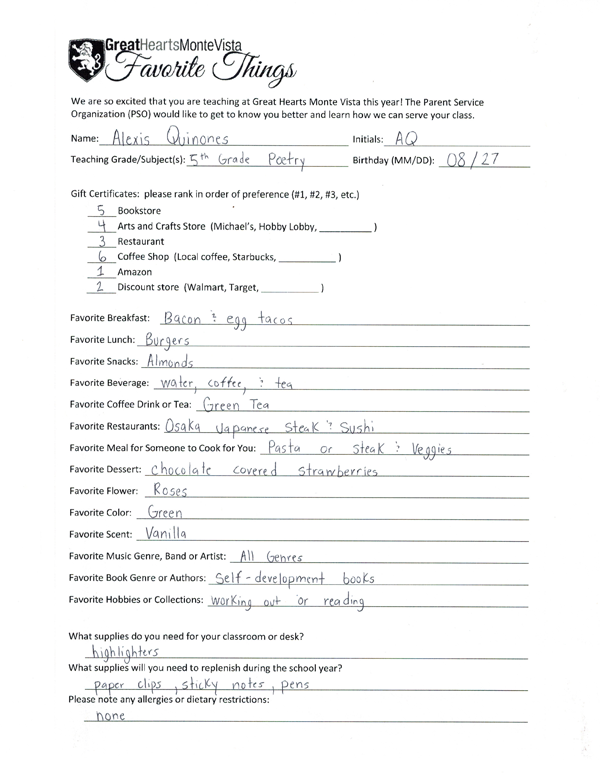 GreatHeartsMonteVista
Favorite Things
We are so excited that you are teaching at Great Hearts Monte Vista this year! The Parent Service
Organization (PSO) would like to get to know you better and learn how we can serve your class.
Name: Alexis Quinones Initials: AQ
Teaching Grade/Subject(s): 5th Grade Poetry Birthday (MM/DD): 08/27
Gift Certificates: please rank in order of preference (#1, #2, #3, etc.)
5 Bookstore
4 Arts and Crafts Store (Michael's, Hobby Lobby, __________ )
3 Restaurant
6 Coffee Shop (Local coffee, Starbucks, __________ )
1 Amazon
2 Discount store (Walmart, Target, __________ )
Favorite Breakfast: Bacon & egg tacos
Favorite Lunch: Burgers
Favorite Snacks: Almonds
Favorite Beverage: water, coffee, & tea
Favorite Coffee Drink or Tea: Green Tea
Favorite Restaurants: Osaka Japanese Steak & Sushi
Favorite Meal for Someone to Cook for You: Pasta or steak & veggies
Favorite Dessert: chocolate covered strawberries
Favorite Flower: Roses
Favorite Color: Green
Favorite Scent: Vanilla
Favorite Music Genre, Band or Artist: All Genres
Favorite Book Genre or Authors: Self-development books
Favorite Hobbies or Collections: working out or reading
What supplies do you need for your classroom or desk?
highlighters
What supplies will you need to replenish during the school year?
paper clips, sticky notes, pens
Please note any allergies or dietary restrictions:
none